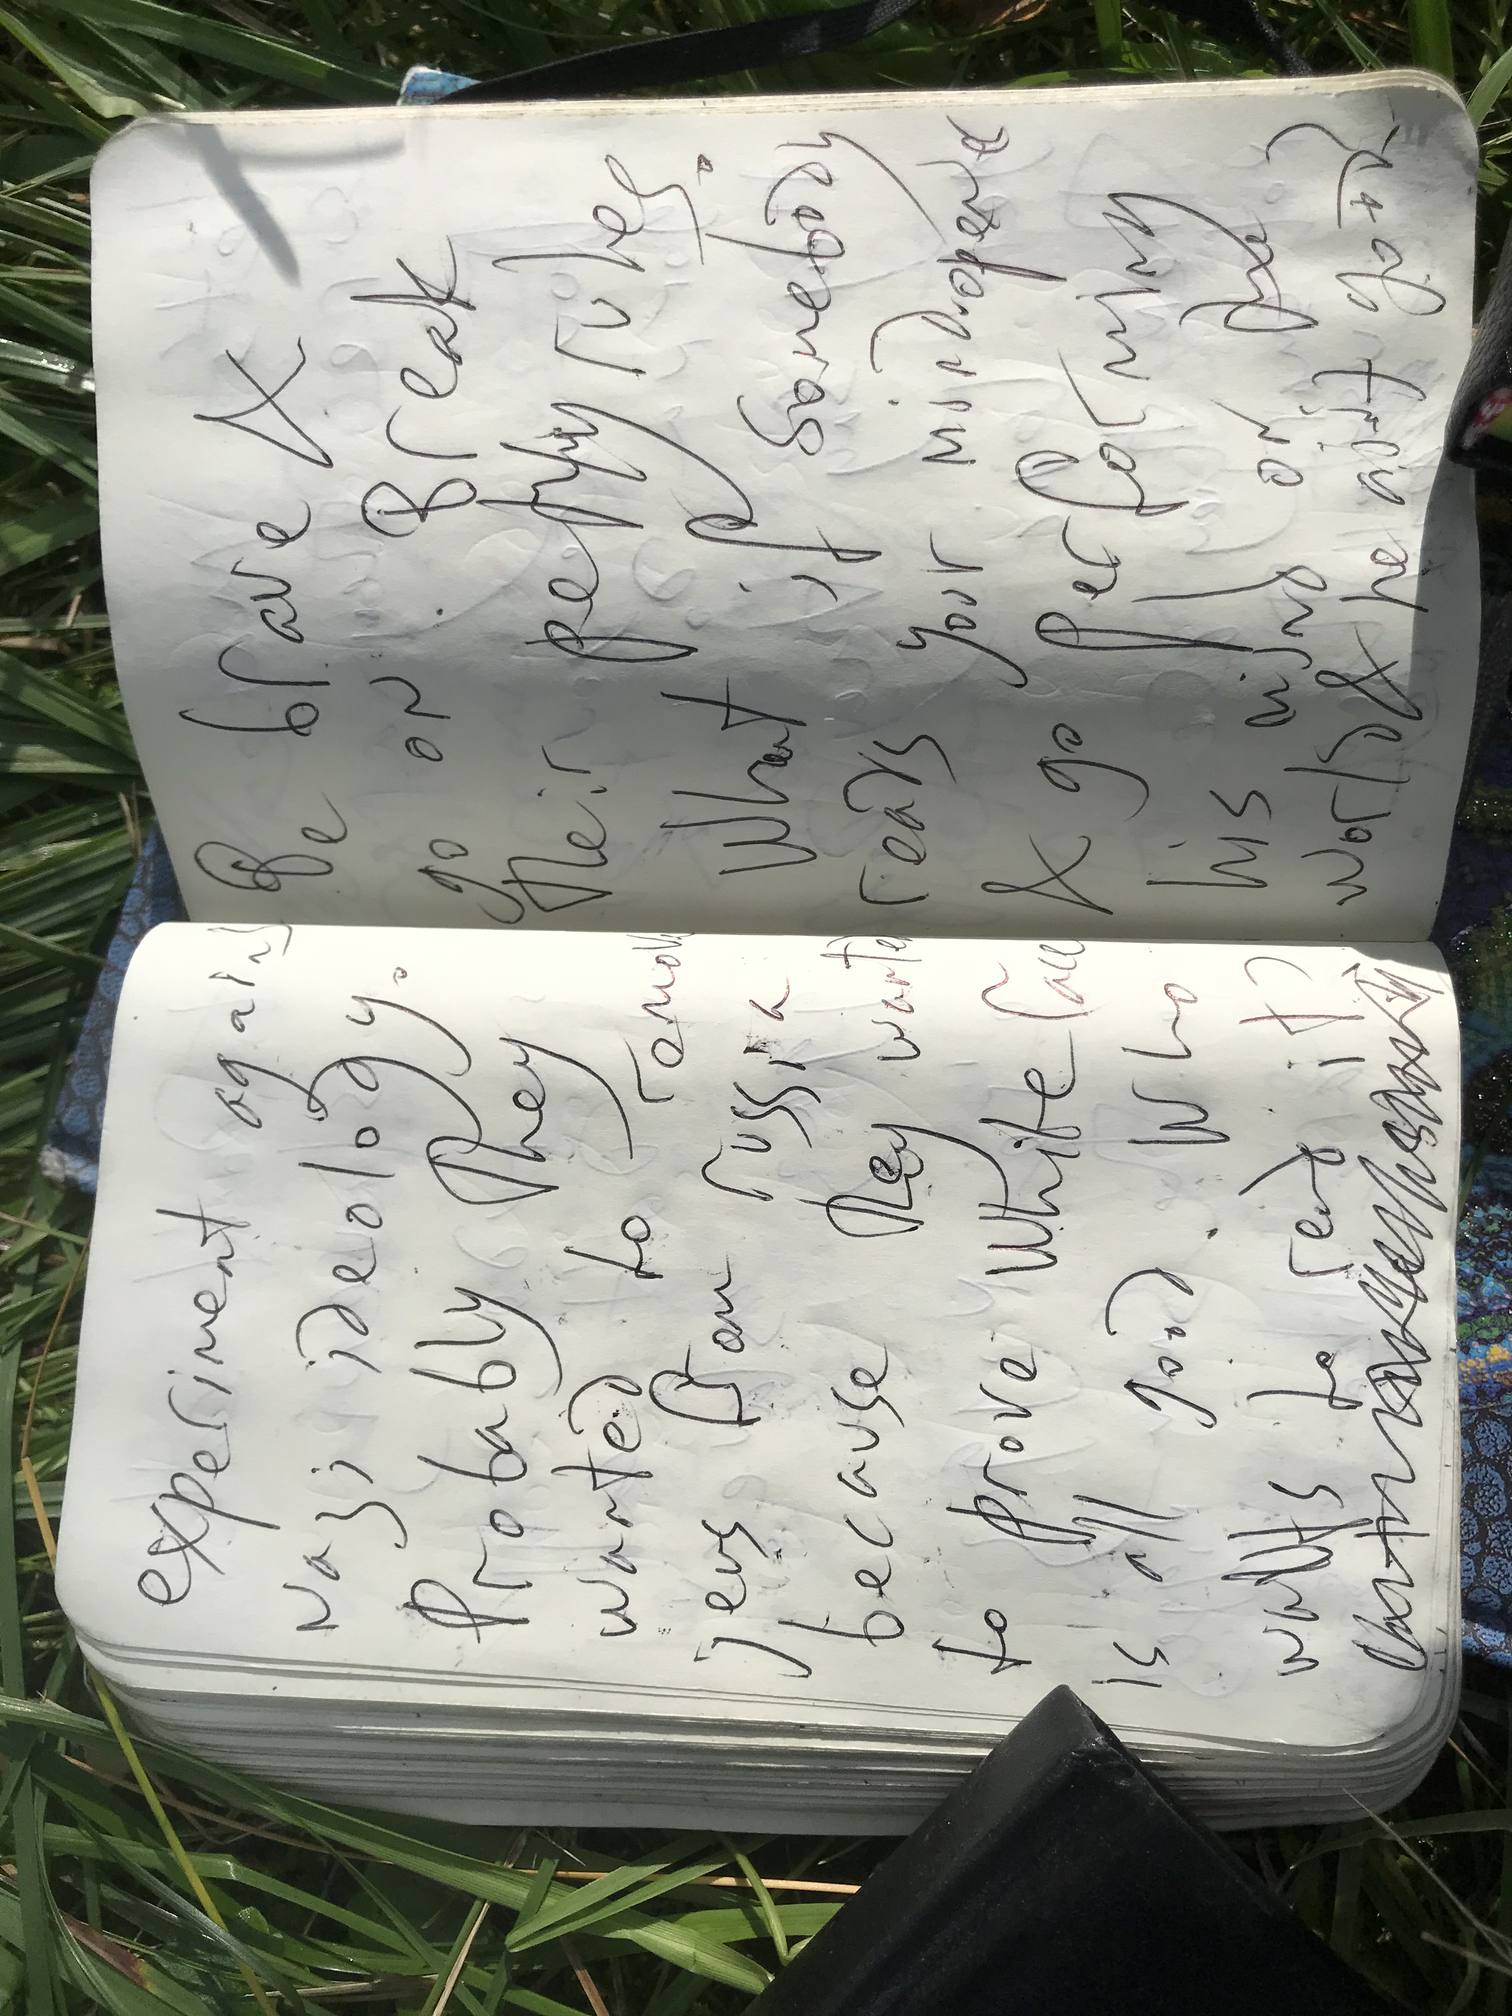 experiment agains
nazi ideology.
Probably They
wanted to remov
jews from russia
because they wanted
to prove White race
is all good. Who
wants to read it?
Be brave &
go on. Break
their petty rules.
What if somebody
reads your mindopenr
& go performing
his mind on
world & he ain't gotz